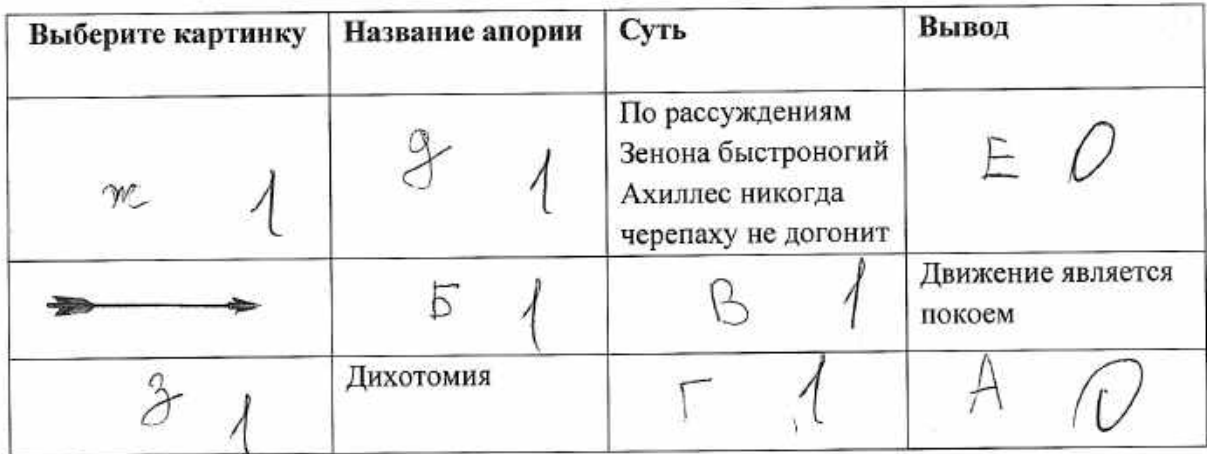 Выберите картинку
Название апории
Суть
Вывод
ж 1
д 1
По рассуждениям
Зенона быстроногий
Ахиллес никогда
черепаху не догонит
Е 0
Б 1
В 1
Движение является
покоем
З 1
Дихотомия
Г 1
А 0